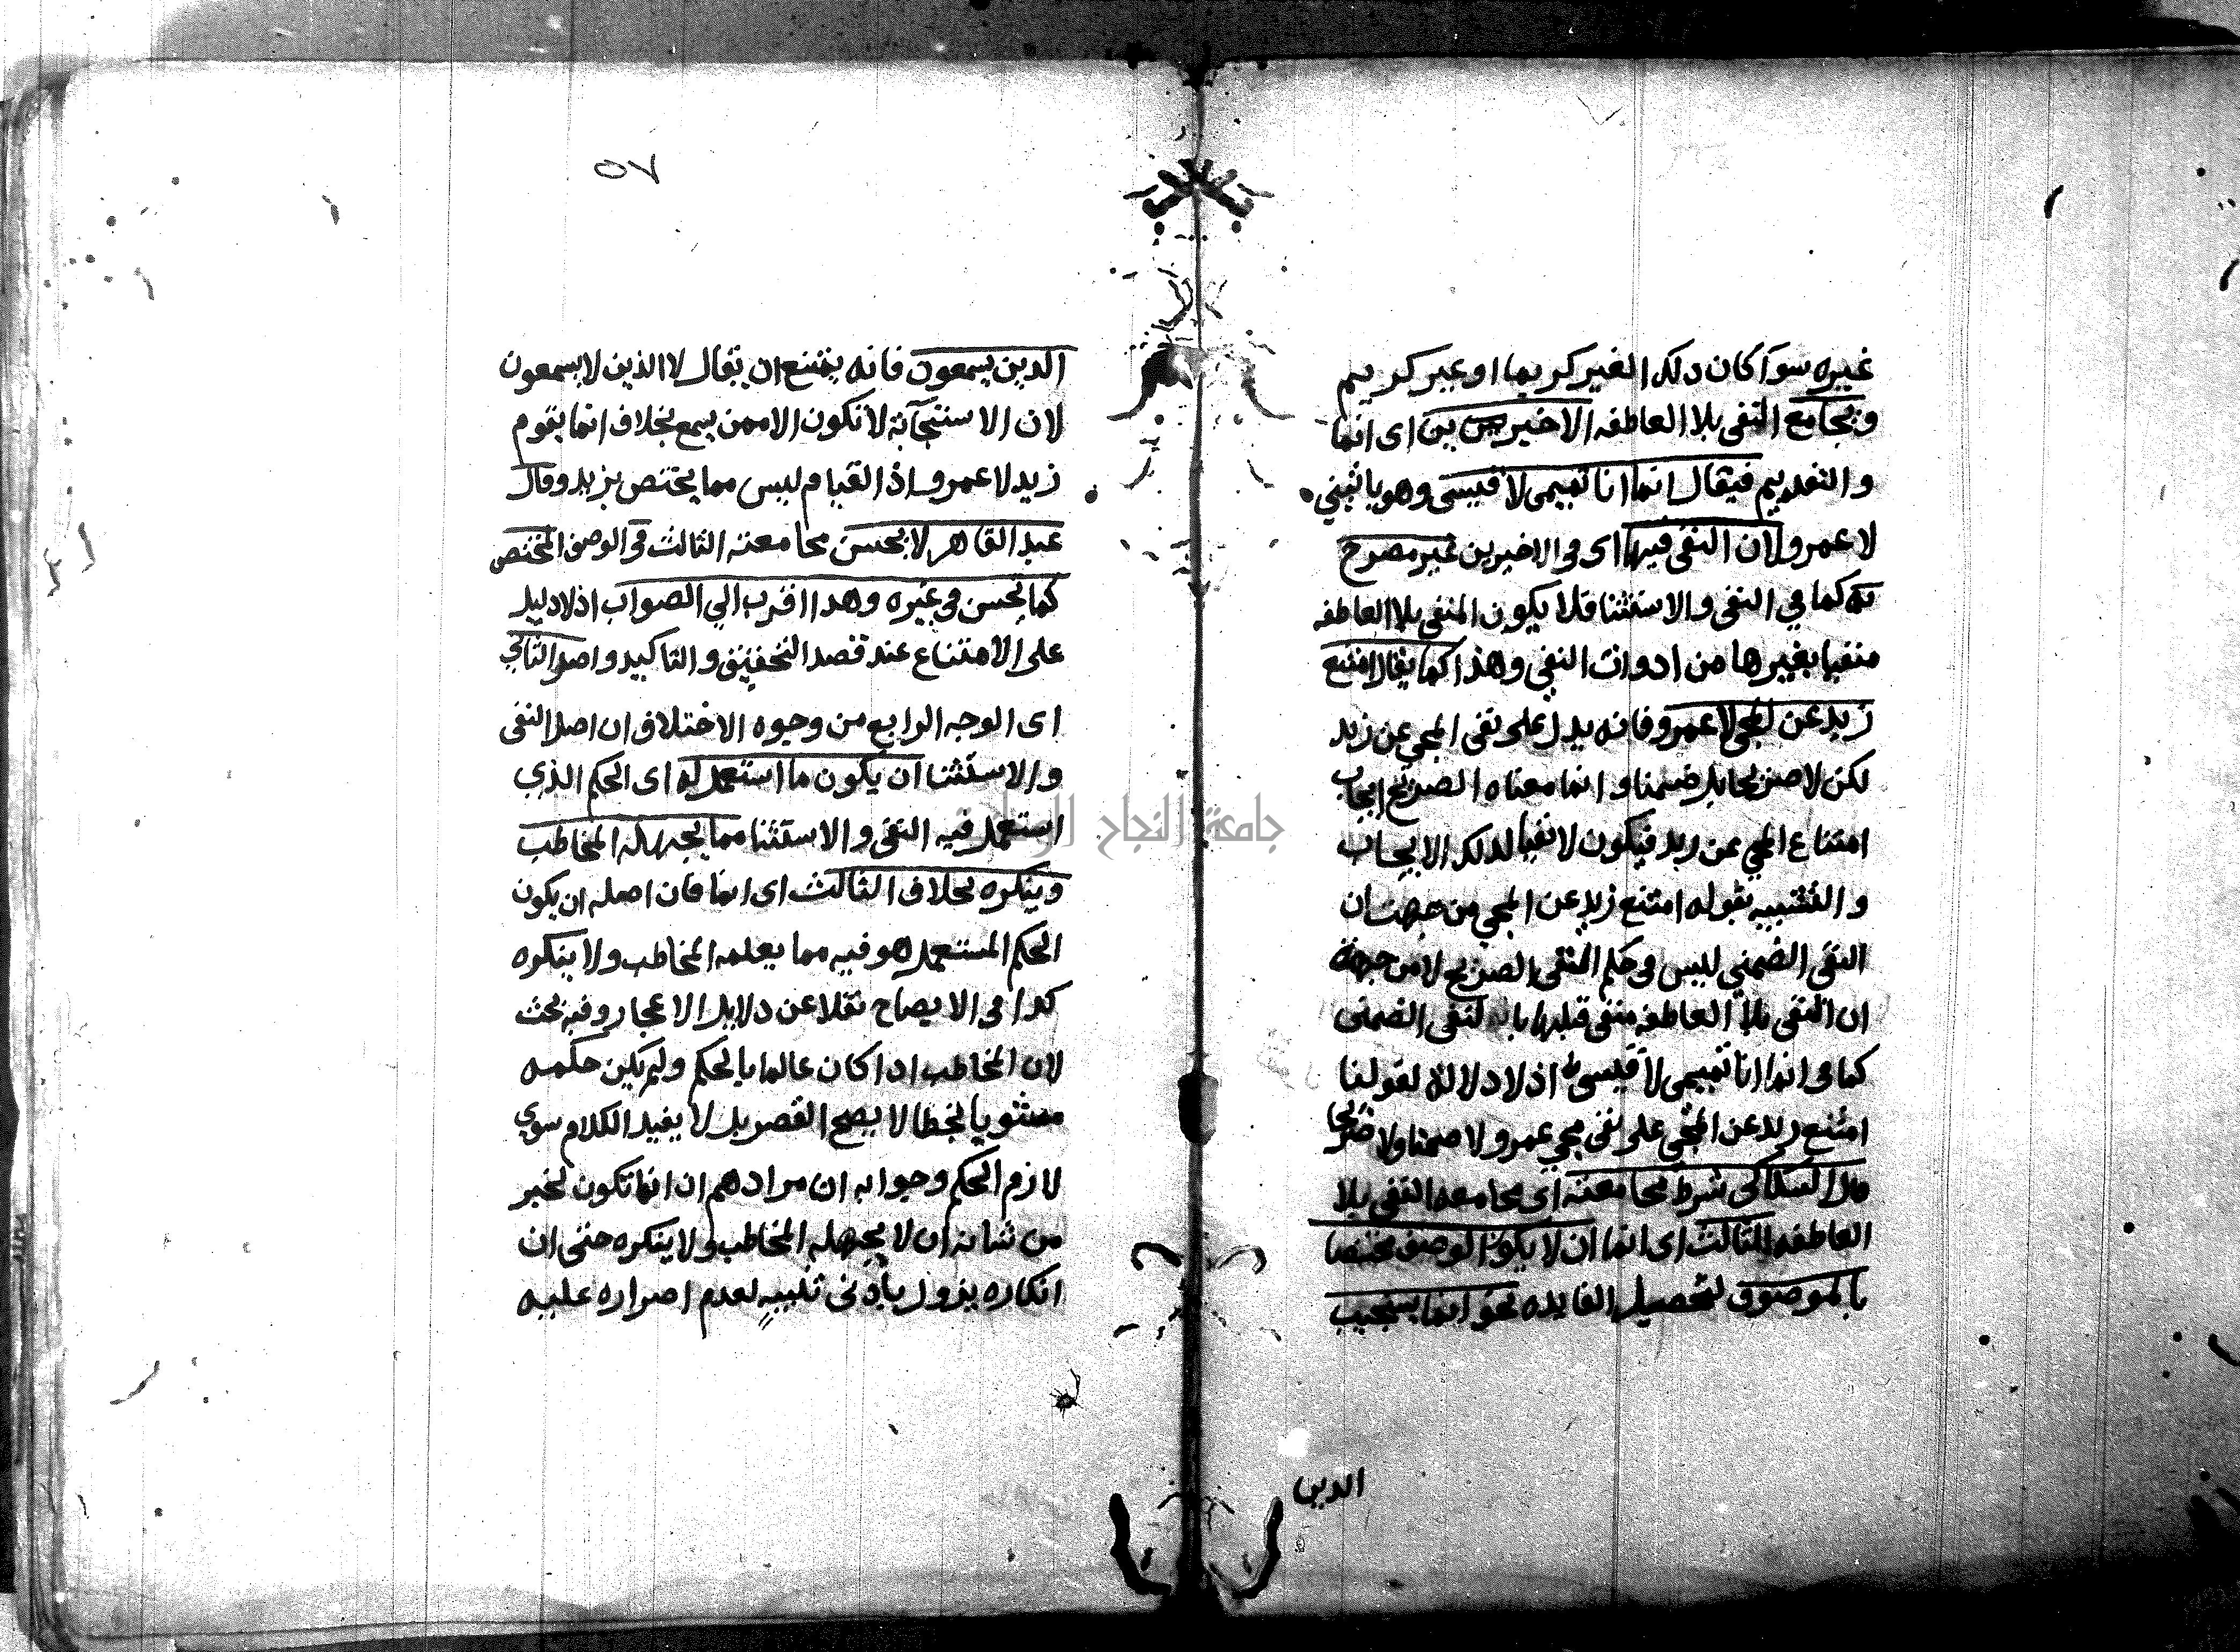 غيره سوآ كان دلك الغير كريما او غير كريم
ويجامع النفى بلا العاطفه الاخيرين اى انما
والتقديم فيقال انما انا تميمى لا قيسى وهو ياتيني
لا عمرو لان النفى فيهما اى فى الاخيرين غير مصرح
به كما في النفى والاستثنا فلا يكون المنفى بلا العاطفه
منفيا بغيرها من ادوات النفى وهذا كما يقال امتنع
زيد عن المجى لا عمرو فانه يدل على نفى المجي عن زيد
لكن لا صريحا بل ضمنا وانما معناه الصريح ايجاب
امتناع المجي عن زيد فيكون لا نفيا لدلك الايجاب
والتشبيه بقوله امتنع زيد عن المجي من جهت ان
النفى الضمني ليس فى حكم النفى الصريح لا من جهة
ان النفى بلا العاطفه منفى قبلها بالنفى الضمنى
كما فى انما انا تميمى لا قيسى اذ لا دلالة لقولنا
امتنع زيد عن المجي على نفى مجي عمرو لا ضمنا ولا صريحا
قال السكاكى شرط مجامعته اى مجامعه النفى بلا
العاطفه الثالث اى انما ان لا يكون الوصف مختصا
بالموصوف لتحصيل الفايده نحو انما يستجيب
الدين
٥٧
الدين يسمعون فانه يمتنع ان يقال لا الذين لا يسمعون
لان الاستجآبة لا تكون الا ممن يسمع بخلاف انما يقوم
زيد لا عمرو اذ القيام ليس مما يختص بزيد وقال
عبد القاهر لا يحسن مجامعته الثالث فى الوصف المختص
كما يحسن فى غيره وهدا اقرب الي الصواب اذ لا دليل
على الامتناع عند قصد التحقيق والتاكيد واصل الثاني
اى الوجه الرابع من وجوه الاختلاف ان اصل النفى
والاستثنا ان يكون ما استعمل له اى الحكم الذي
استعمل فيه النفى والاستثنا مما يجهله المخاطب
وينكره بخلاف الثالث اى انما فان اصله ان يكون
الحكم المستعمل هو فيه مما يعلمه المخاطب ولا ينكره
كدا فى الايضاح نقلا عن دلايل الاعجاز وفيه بحث
لان المخاطب ادا كان عالما بالحكم ولم يكن حكمه
مشوبا بخطا لا يصح القصر بل لا يفيد الكلام سوي
لازم الحكم وجوابه ان مرادهم ان انما تكون لخبر
من شانه ان لا يجهله المخاطب ولا ينكره حتى ان
انكاره يزول بأدنى تنبيه لعدم اصراره عليه
جامعة النجاح الوطنية